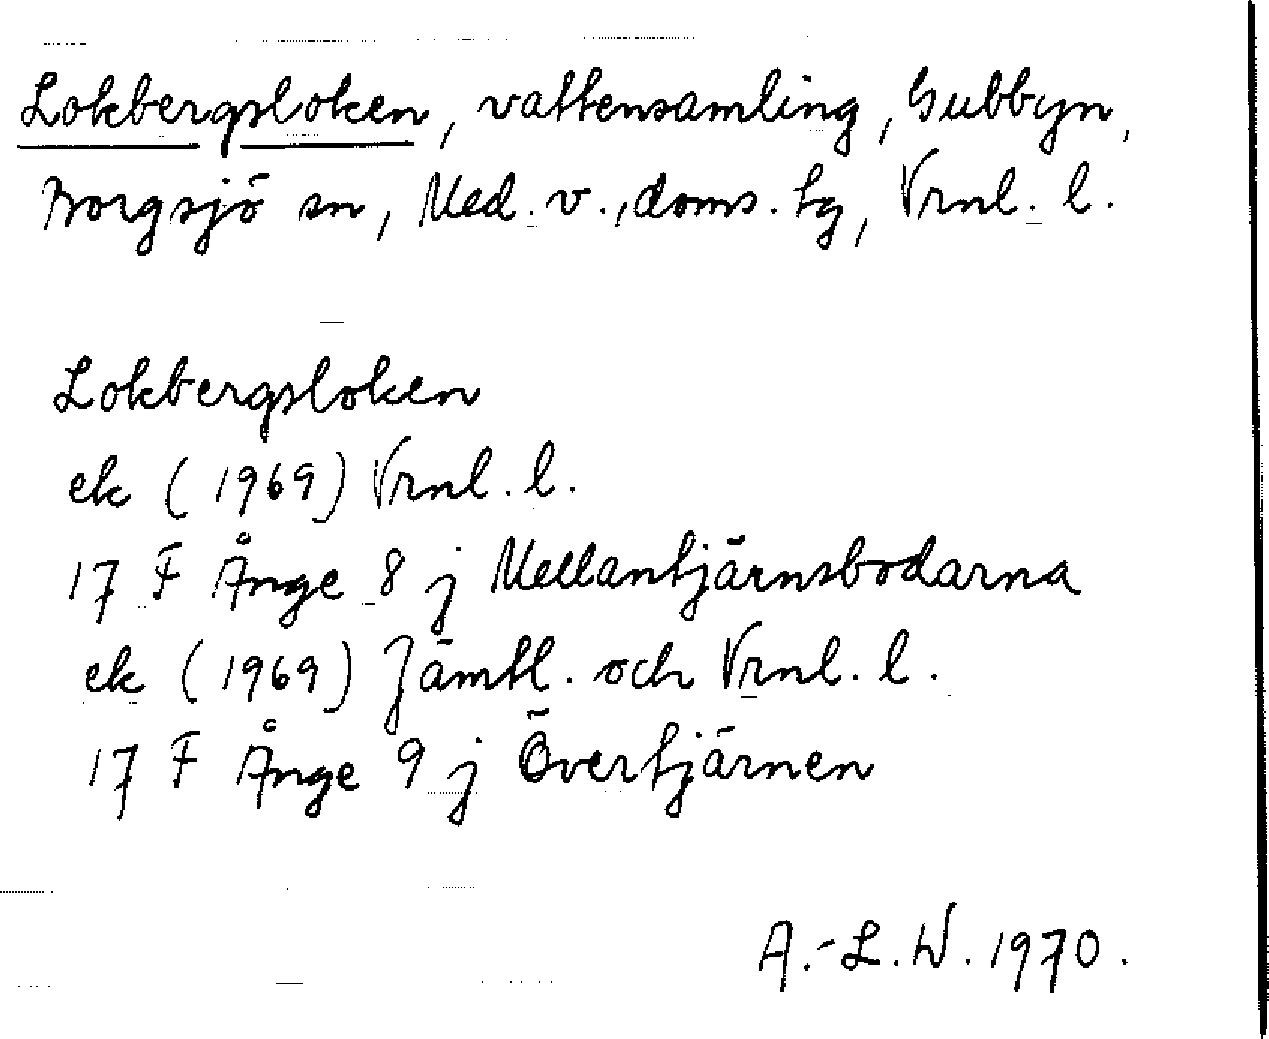 Lokbergsloken, vattensamling, Gubbyn,
Borgsjö sn, Med. v., doms. tg, Vrnl. l.
Lokbergsloken
ek (1969) Vrnl. l.
17 F Ånge 8 j Mellantjärnsbodarna
ek (1969) Jämtl. och Vrnl. l.
17 F Ånge 9 j Övertjärnen
A.-L. W. 1970.